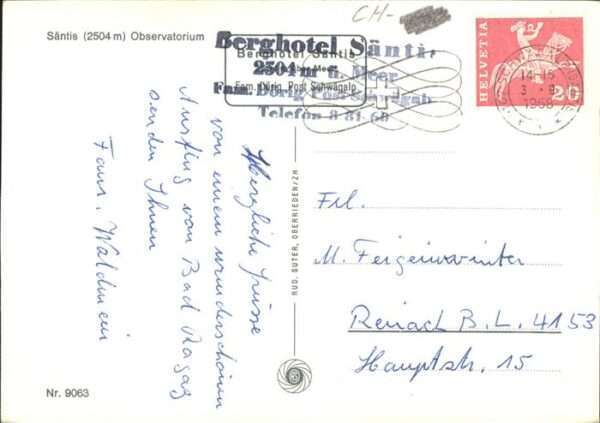 Säntis (2504 m) Observatorium
CH-
Berghotel Säntis
2504 m ü. Meer
Fam. Dörig Post Schwägalp
Telefon 8 81 68
Berghotel Säntis
Fam. Dörig, Post Schwägalp
HELVETIA
20
14-15
1968
Herzliche Grüsse
von einem wunderschönen
Ausflug von Bad Ragaz
senden Ihnen
Fam. Waldmeier
RUD. SUTER, OBERRIEDEN/ZH
Frl.
M. Feigenwinter
Reinach B.L. 4153
Hauptstr. 15
Nr. 9063